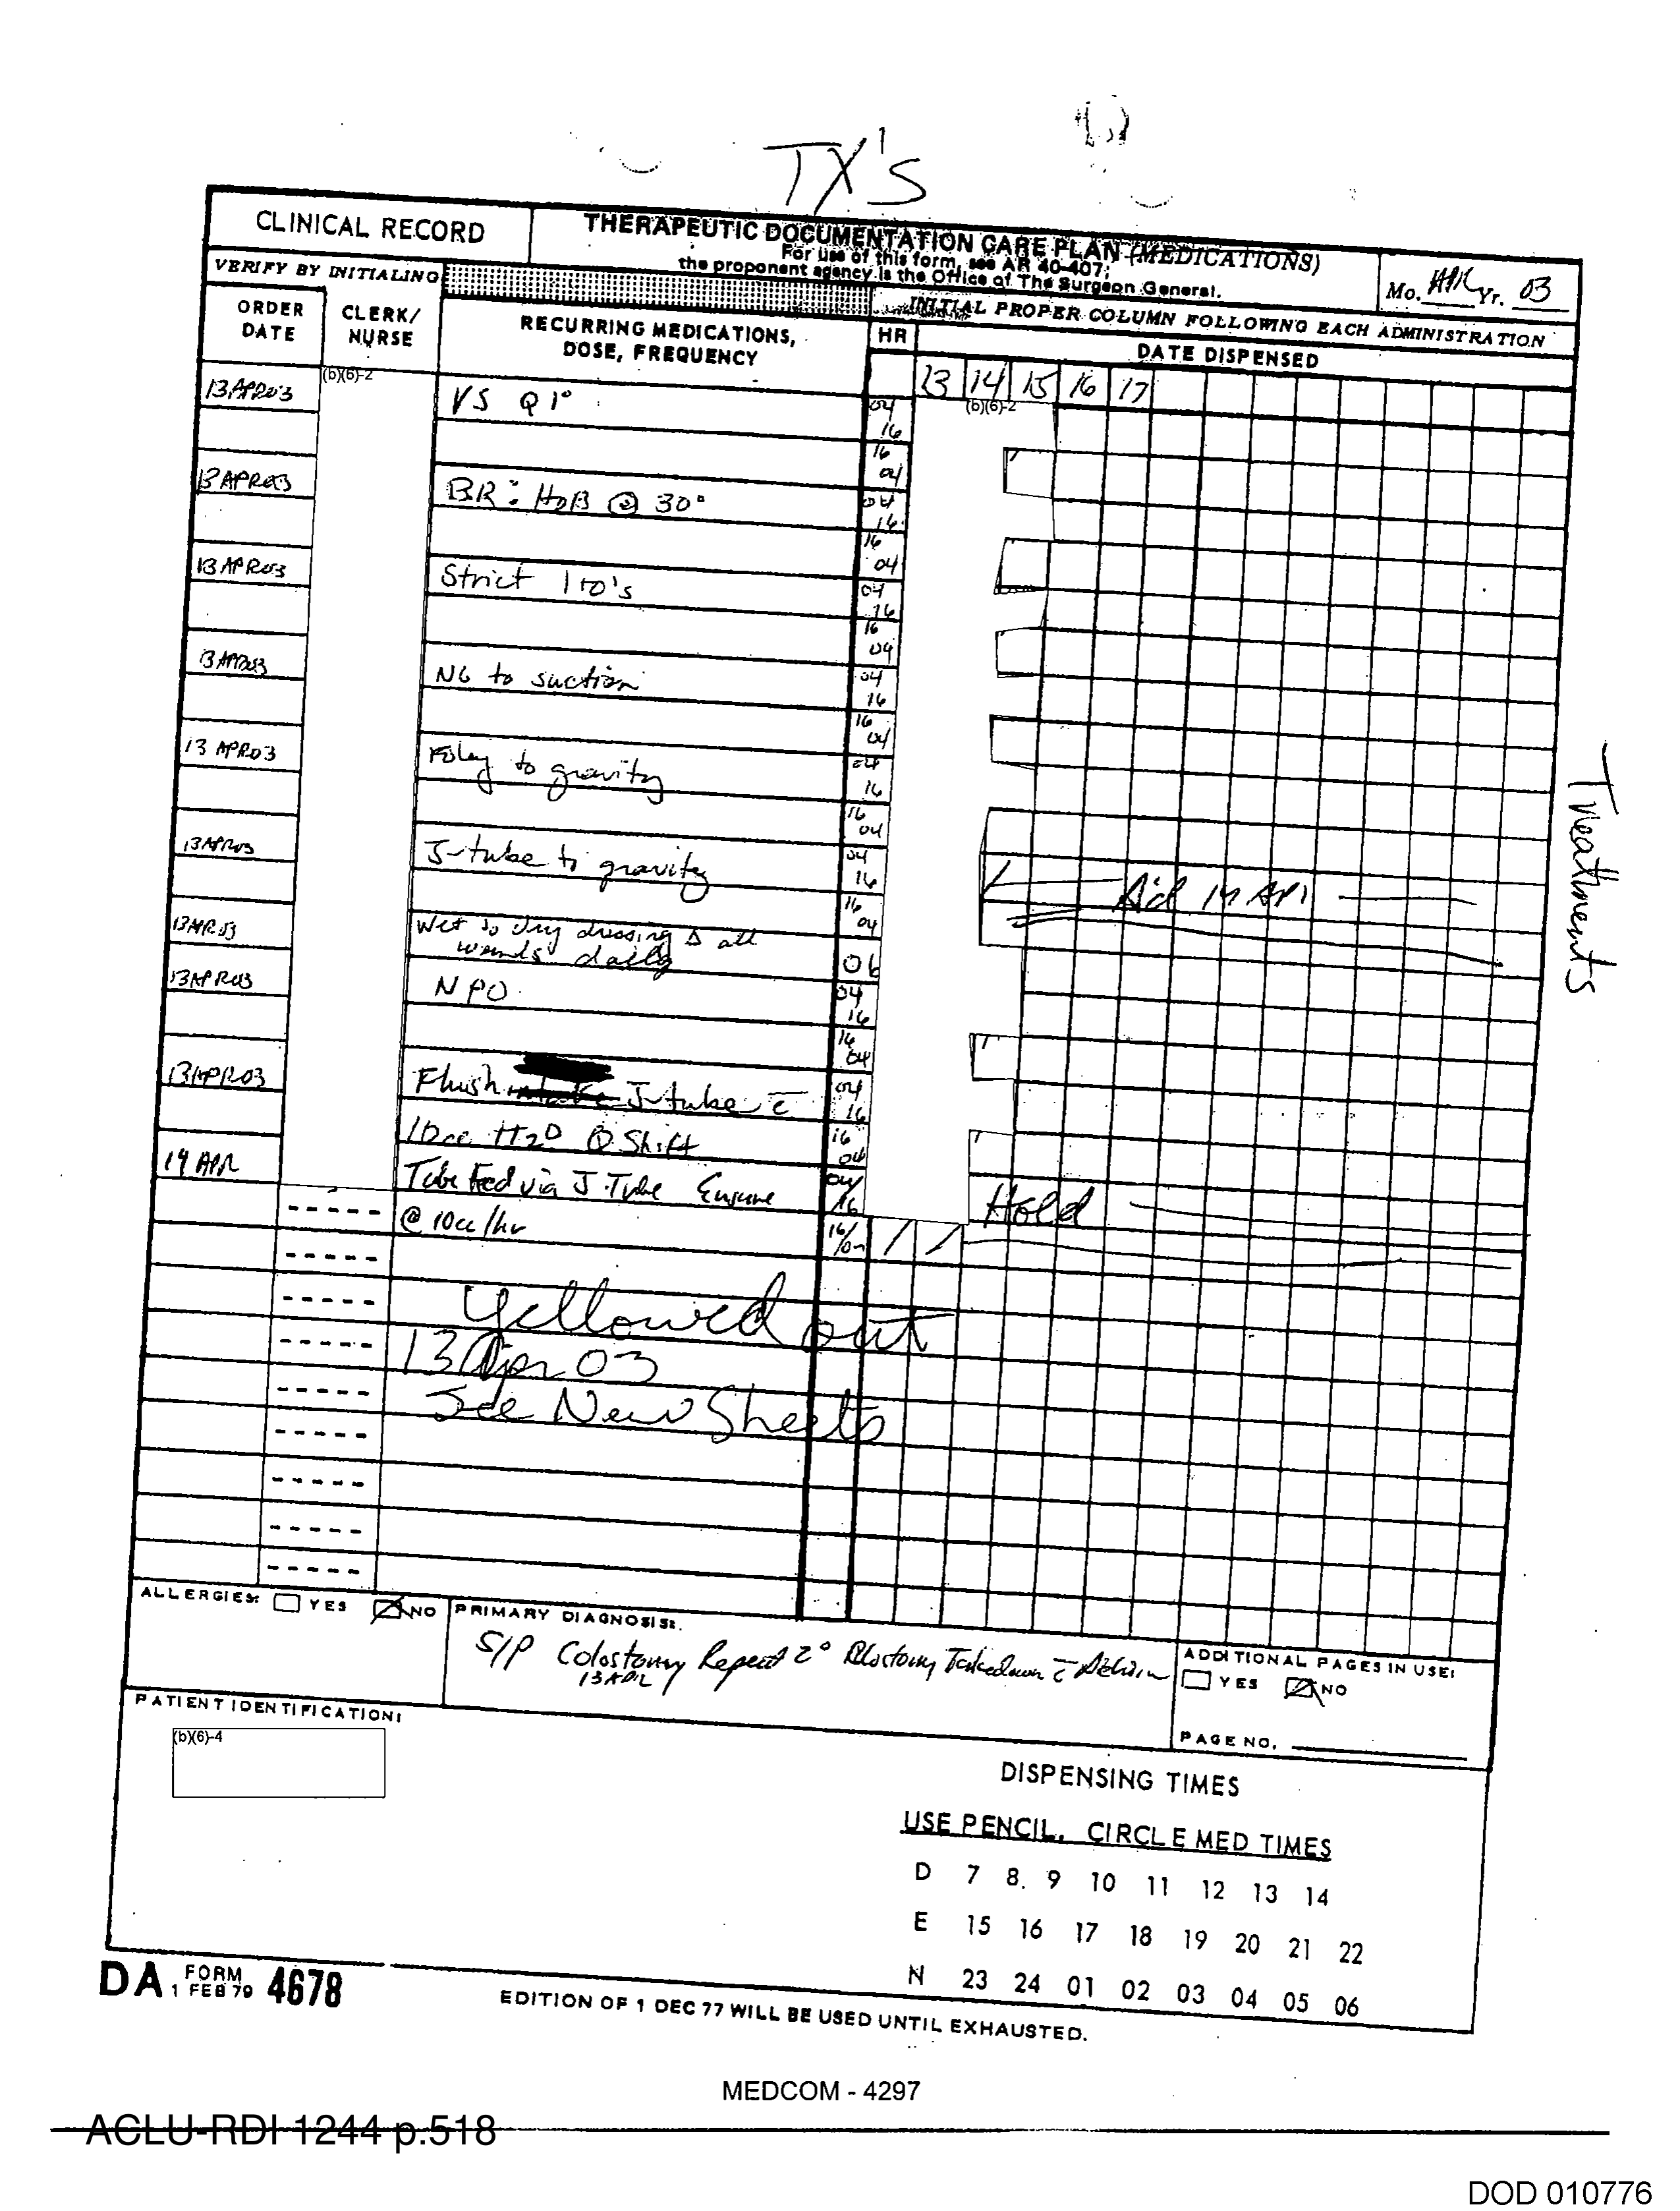 TX's
CLINICAL RECORD
THERAPEUTIC DOCUMENTATION CARE PLAN (MEDICATIONS)
For use of this form, see AR 40-407;
the proponent agency is the Office of The Surgeon General.
Mo. APR Yr. 03
VERIFY BY INITIALING
INITIAL PROPER COLUMN FOLLOWING EACH ADMINISTRATION
ORDER DATE
CLERK/ NURSE
RECURRING MEDICATIONS, DOSE, FREQUENCY
HR
DATE DISPENSED
13 14 15 16 17
13 APR 03 (b)(6)-2 VS Q1° 04 (b)(6)-2
16
16
04
13 APR 03 BR: HOB @ 30° 04
16
16
04
13 APR 03 Strict I+O's 04
16
16
04
13 APR 03 NG to suction 04
16
16
04
13 APR 03 Foley to gravity 04
16
16
04
13 APR 03 J-tube to gravity 04
16
16
04
13 APR 03 Wet to dry dressing Δ all
wounds daily 06
13 APR 03 NPO 04
16
16
04
13 APR 03 Flush J-tube c̄ 04
16
10cc H2O Q Shift 16
04
14 APR Tube Feed via J-Tube Ensure 04/
16 Hold
@ 10cc/hr 16/04
Yellowed out
13 Apr 03
See New Sheets
Treatments
ALLERGIES: YES NO
PRIMARY DIAGNOSIS:
S/P Colostomy Repeat 2° Takedown c̄
13 APR
ADDITIONAL PAGES IN USE:
YES NO
PAGE NO.
PATIENT IDENTIFICATION:
(b)(6)-4
DISPENSING TIMES
USE PENCIL. CIRCLE MED TIMES
D 7 8. 9 10 11 12 13 14
E 15 16 17 18 19 20 21 22
N 23 24 01 02 03 04 05 06
DA FORM 1 FEB 79 4678
EDITION OF 1 DEC 77 WILL BE USED UNTIL EXHAUSTED.
MEDCOM - 4297
ACLU-RDI 1244 p.518
DOD 010776